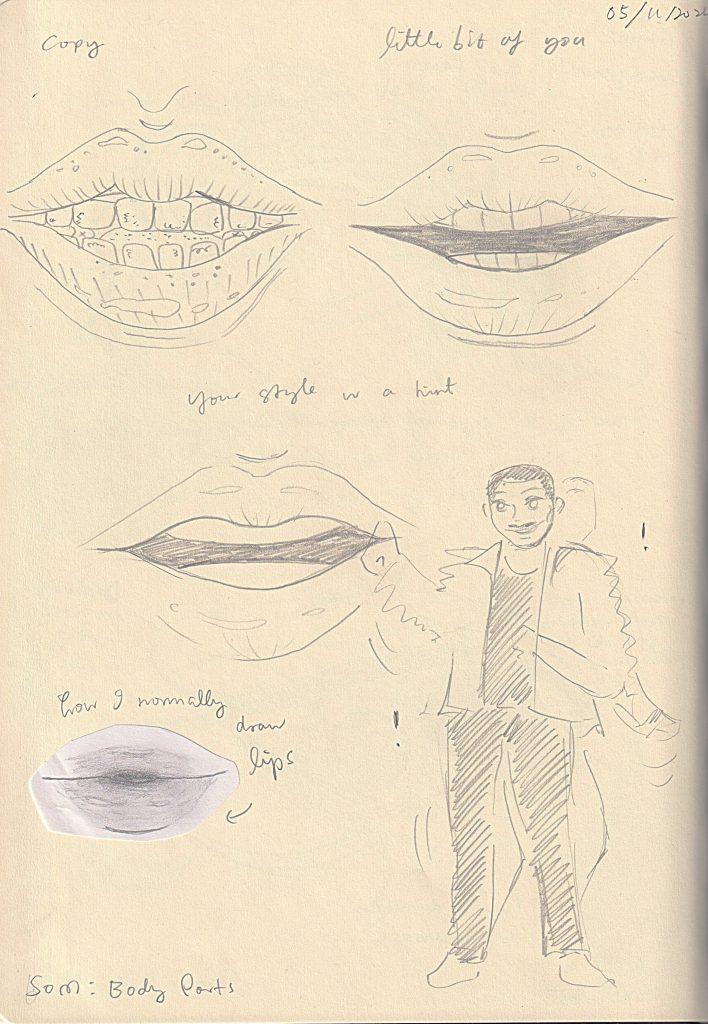 05/11/202
Copy
little bit of you
your style w a hint
how I normally
draw
lips
!
!
Som: Body Parts